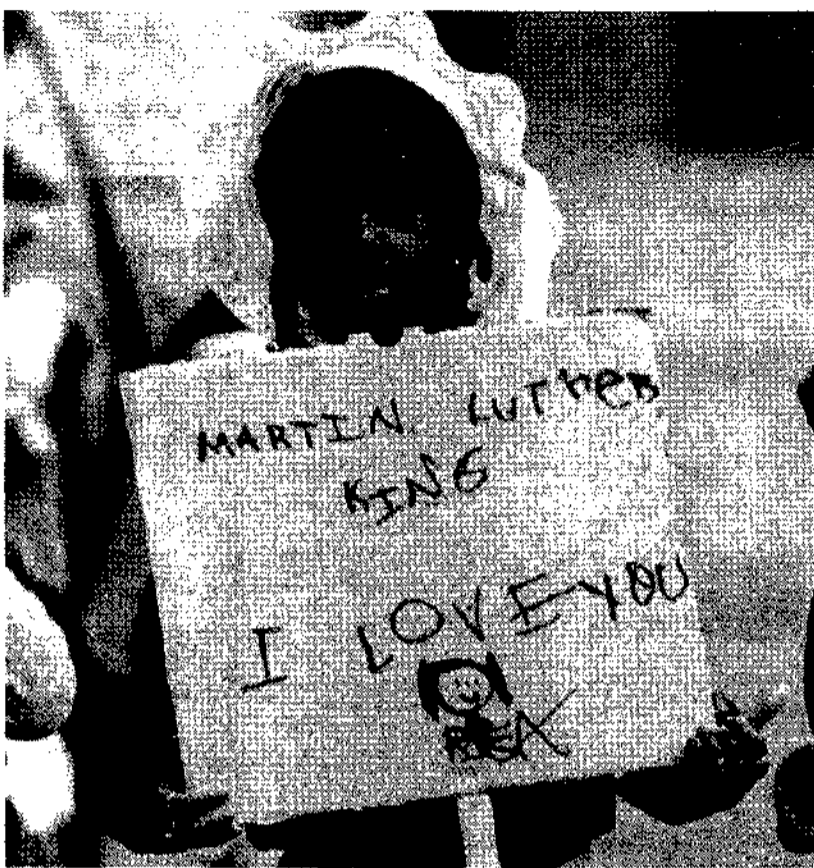 MARTIN LUTher
KING
I LOVE YOU